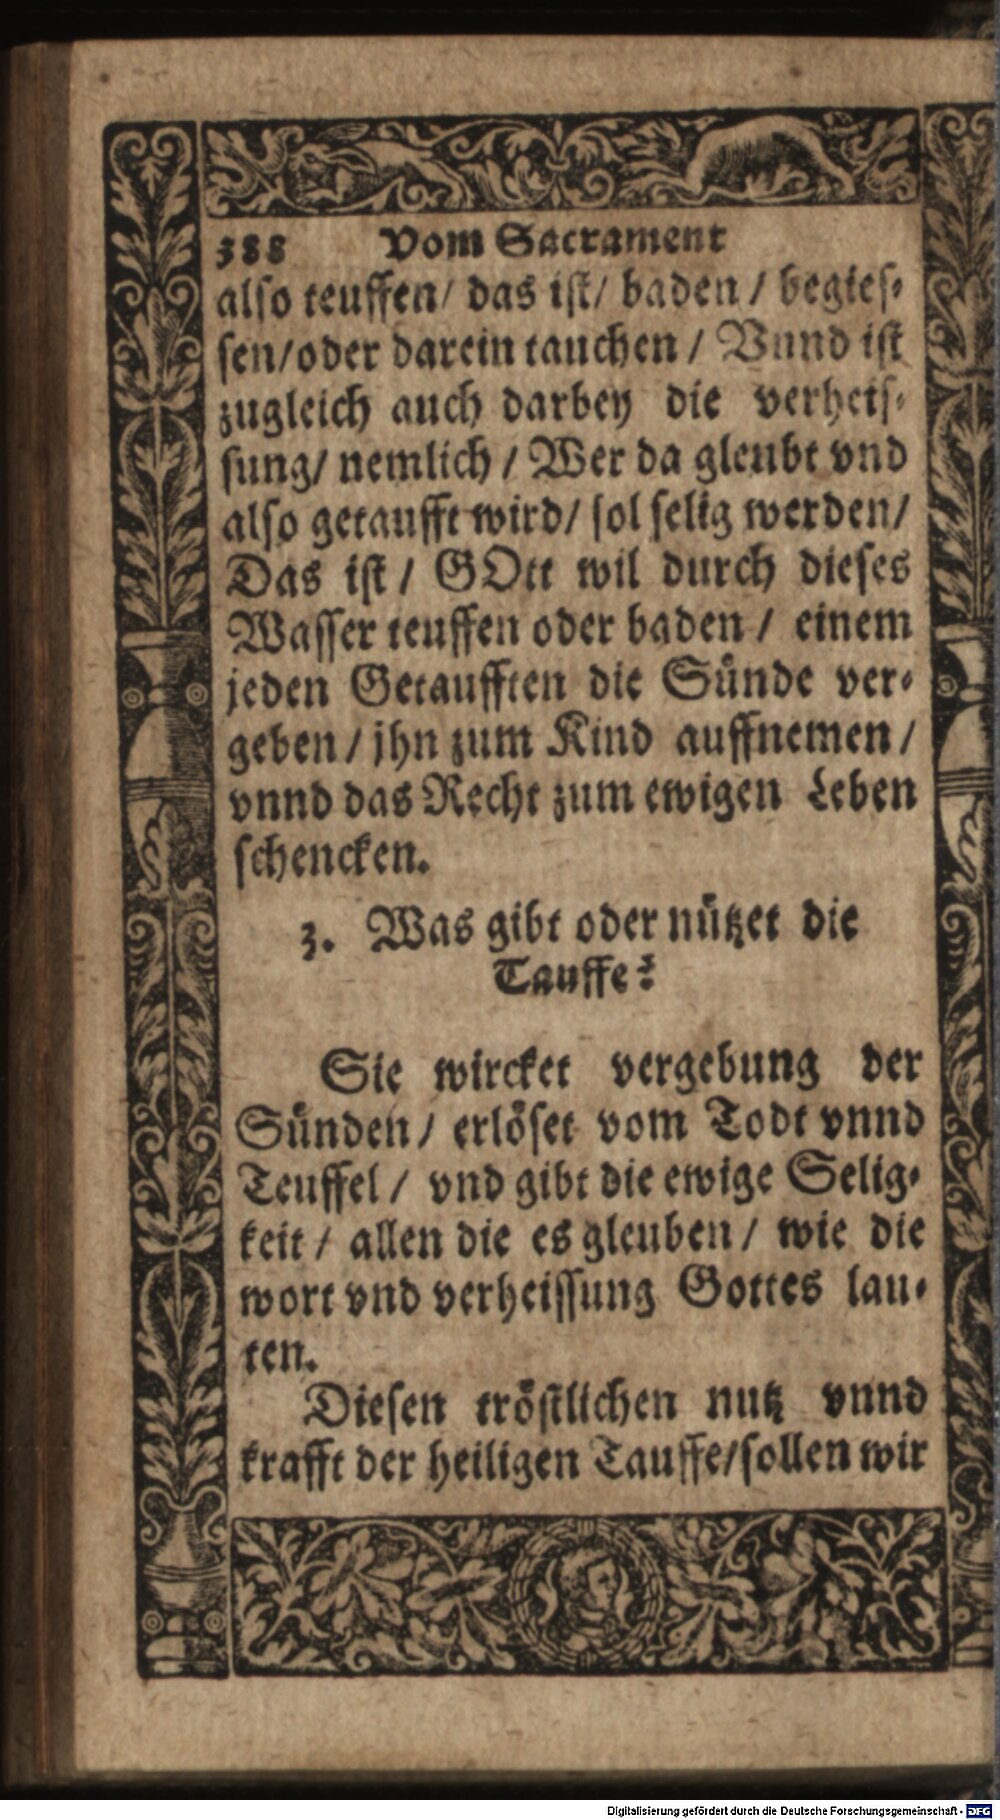 388 Vom Sacrament
also teuffen/ das ist/ baden/ begies-
sen/oder darein tauchen/ Vnnd ist
zugleich auch darbey die verheis-
sung/ nemlich/ Wer da gleubt vnd
also getaufft wird/ sol selig werden/
Das ist/ GOtt wil durch dieses
Wasser teuffen oder baden/ einem
jeden Getaufften die Sünde ver-
geben/ jhn zum Kind auffnemen/
vnnd das Recht zum ewigen Leben
schencken.
3. Was gibt oder nützet die
Tauffe?
Sie wircket vergebung der
Sünden/ erlöset vom Todt vnnd
Teuffel/ vnd gibt die ewige Selig-
keit/ allen die es gleuben/ wie die
wort vnd verheissung Gottes lau-
ten.
Diesen tröstlichen nutz vnnd
krafft der heiligen Tauffe/sollen wir
Digitalisierung gefördert durch die Deutsche Forschungsgemeinschaft - DFG